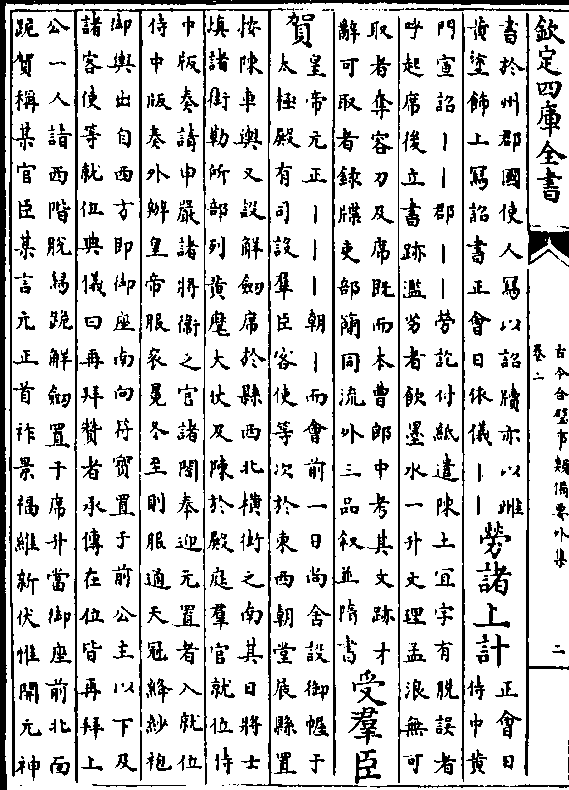 欽定四庫全書
古今合璧事類備要外集
卷二
二
書於州郡國使人寫以詔牘亦以雌
黄塗飾上寫詔書正會日依儀丨丨
勞諸上計
正會日
侍中黄
門宣詔丨丨郡丨丨勞訖付紙遣陳土宜字有脱誤者
呼起席後立書跡濫劣者飲墨水一升文理孟浪無可
取者奪容刀及席既而本曹郎中考其文跡才
辭可取者録牒吏部簡同流外三品叙並隋書
受羣臣
賀
皇帝元正丨丨丨朝丨而會前一日尚舍設御幄于
太極殿有司設羣臣客使等次於東西朝堂展縣置
桉陳車輿又設解劒席於縣西北横街之南其日將士
填諸街勒所部列黄麾大仗及陳於殿庭羣官就位侍
中版奏請中嚴諸將衛之官諸閤奉迎元置者入就位
侍中版奏外辦皇帝服衮冕冬至則服通天冠絳紗袍
御輿出自西方即御座南向符寳置于前公主以下及
諸客使等就位典儀曰再拜贊者承傳在位皆再拜上
公一人詣西階脱舄跪解劒置于席升當御座前北面
跪賀稱某官臣某言元正首祚景福維新伏惟開元神